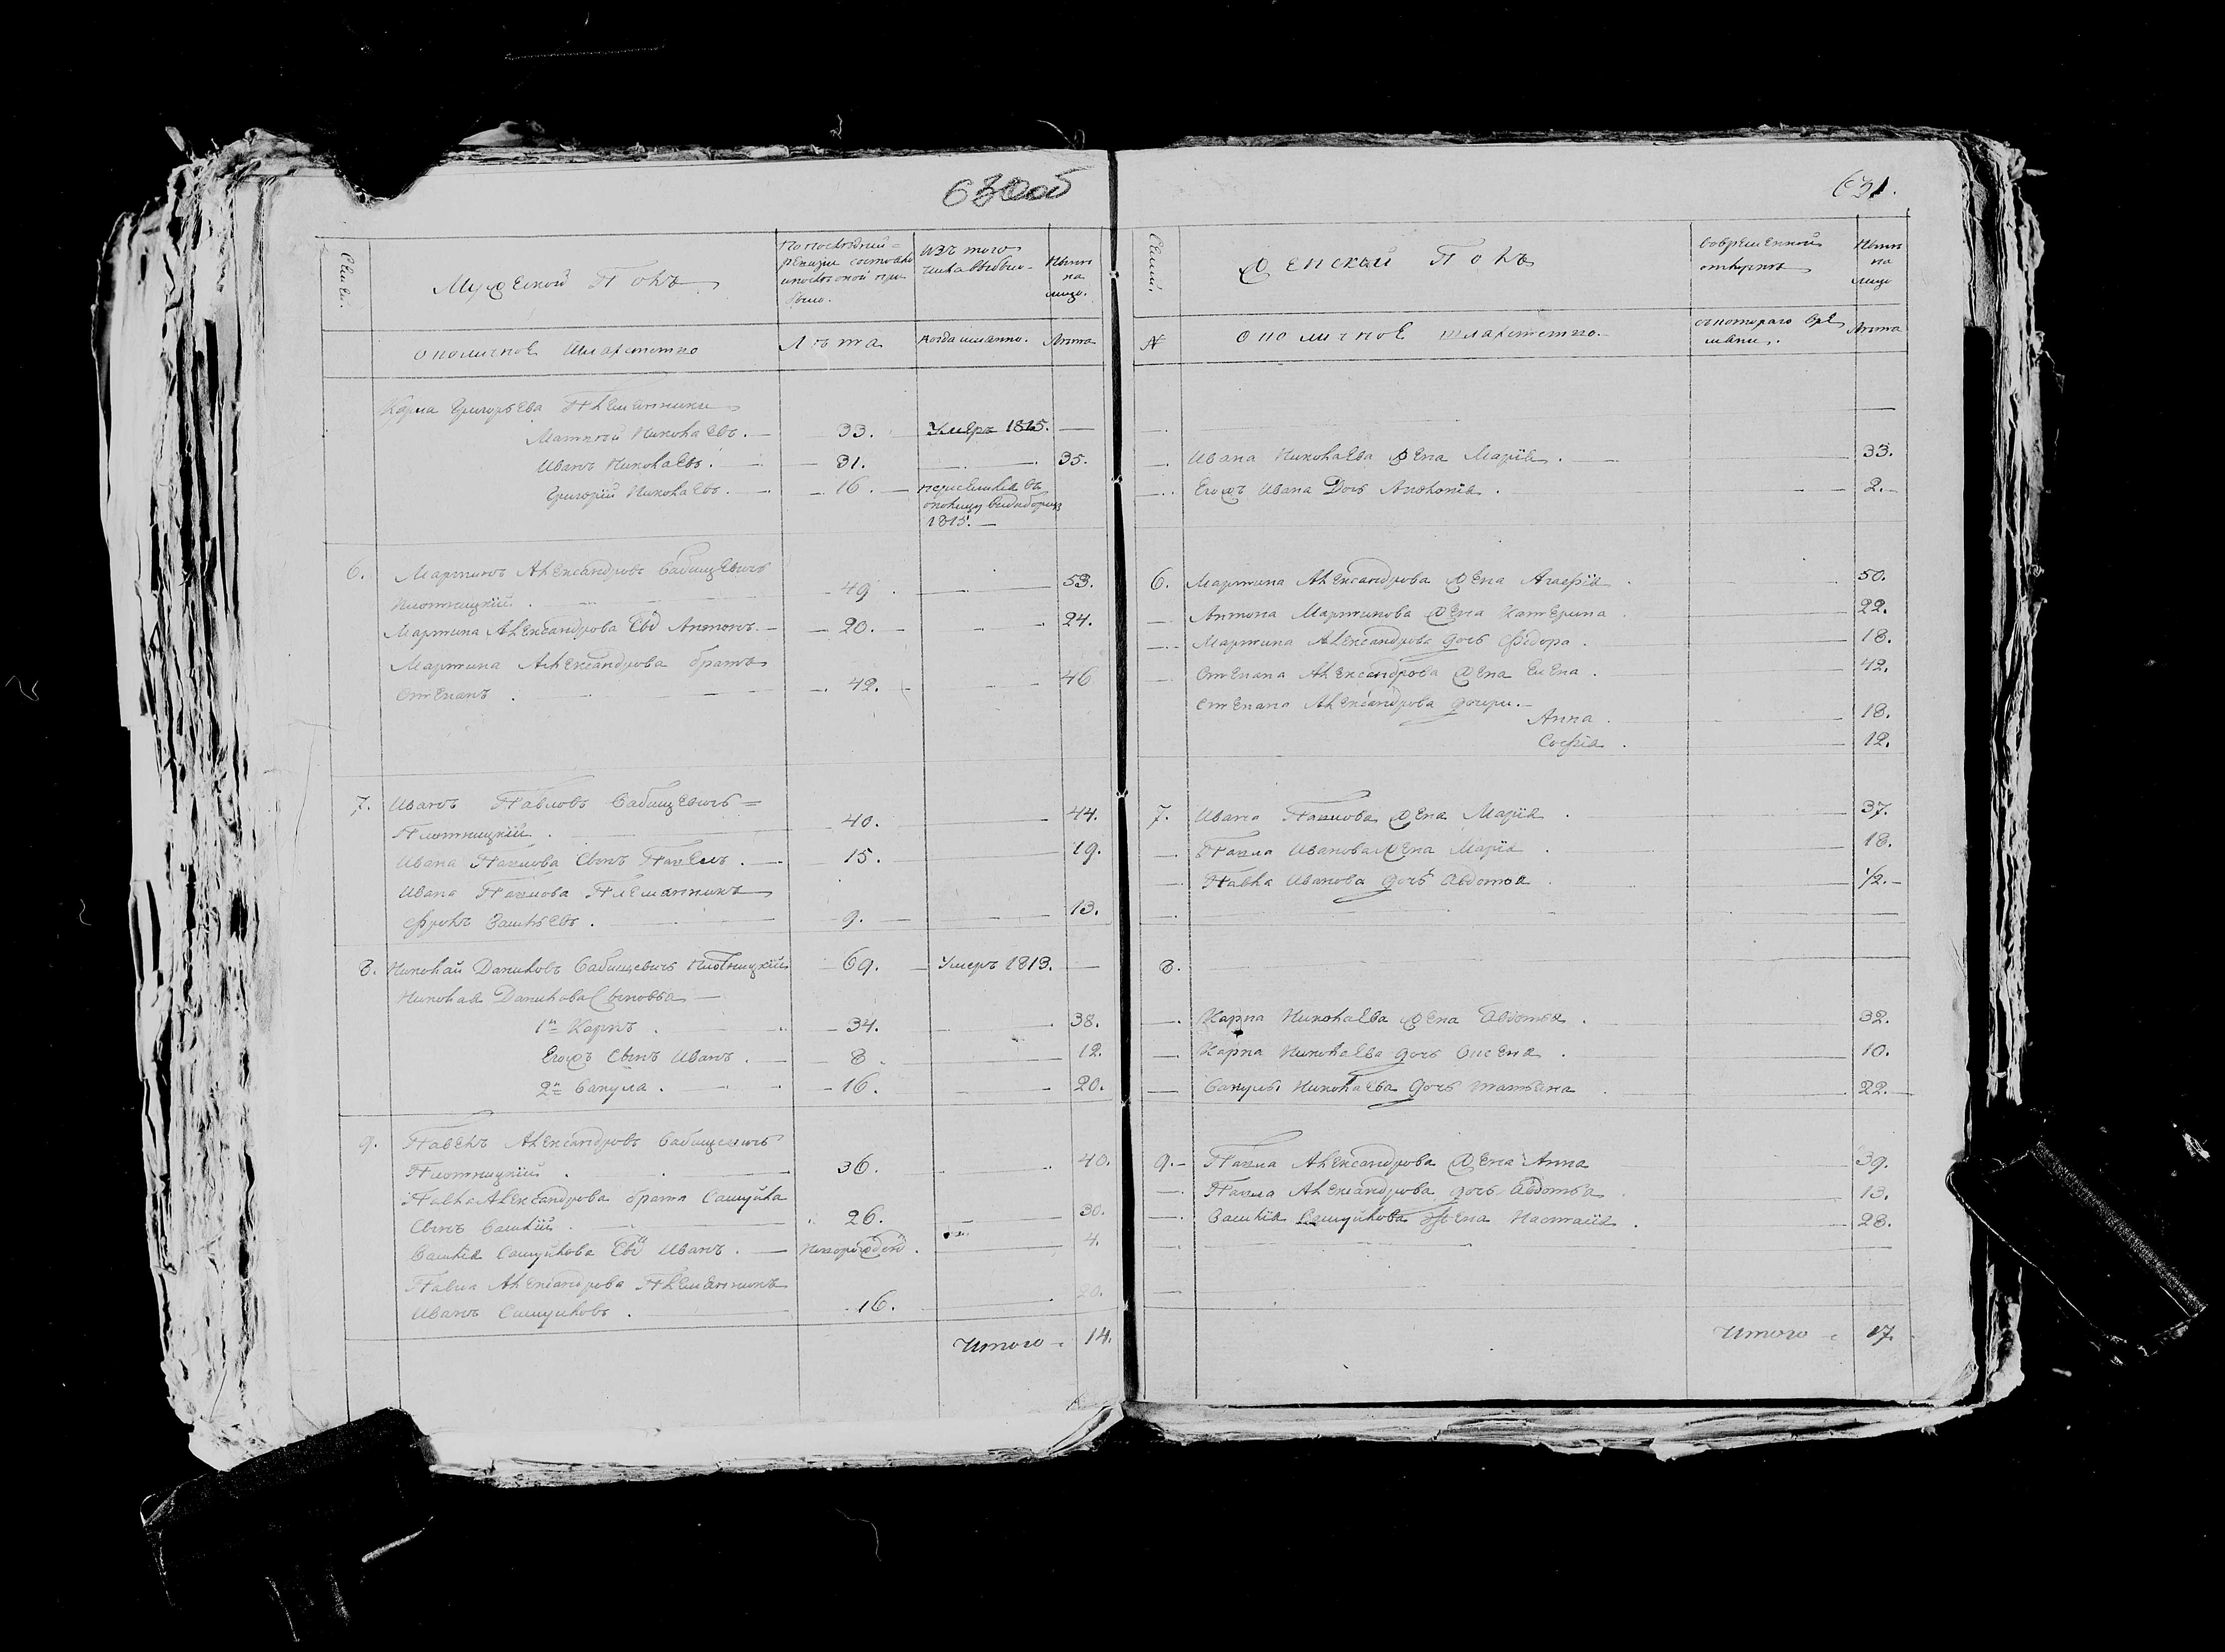 630об
Семьи.
Мужеской Полъ
По последней
ревизии состояло
и после оной при
было.
Изъ того
числа выбыло
Ныне
на
лицо.
Околичное Шляхетство
Лѣта
Когда имянно.
Лѣта
Карпа Григорьева Племянники
Матвей Николаевъ.
33.
Умеръ 1815.
Иванъ Николаевъ.
31.
35.
Григорій Николаевъ.
16.
1815.
6. Мартинъ Александровъ Савицевичъ
Плотницкій.
49
53.
Мартина Александрова Сынъ Антонъ.
20.
24.
Мартина Александрова братъ
Степанъ.
42.
46
7. Иванъ Павловъ Савицевичъ =
Плотницкій.
40.
44.
Ивана Павлова Сынъ Павелъ.
15.
19.
Ивана Павлова Племянникъ
9.
13.
8. Николай Даниловъ Савицевичъ Плотницкій
69.
Умеръ 1813.
Николая Данилова Сыновья
1й Карпъ.
34.
38.
Егожъ Сынъ Иванъ.
8
12.
2й Вакула.
16.
20.
9. Павелъ Александровъ Савицевичъ
Плотницкій
36.
40.
Павла Александрова брата Самуйла
Сынъ Василій
26.
30.
Василія Самуйлова Сынъ Иванъ.
Новорожденъ.
4.
Павла Александрова Племянникъ
Иванъ Самуйловъ.
16.
20.
Итого
14.
631.
Семьи.
Женский Полъ
Во временной
отлучке
Ныне
на
лицо
№
Околичное шляхетство.
съ котораго вре
мени.
Лѣта
Ивана Николаева жена Марія.
33.
Егожъ Ивана Дочь
2.
6. Мартина Александрова жена Агафія
50.
Антона Мартинова жена Катерина
22.
Мартина Александрова дочь Федора.
18.
Степана Александрова жена Елена.
42.
Степана Александрова дочери.
Анна.
18.
Софія.
12.
7. Ивана Павлова жена Марія
37.
Павла Иванова жена Марія
18.
Павла Иванова дочь Авдотья
1/2.
8.
Карпа Николаева жена Авдотья.
32.
Карпа Николаева дочь
10.
Вакулы Николаева дочь Татьяна
22.
9. Павла Александрова жена Анна
39.
Павла Александрова дочь Авдотья
13.
Василія Самуйлова жена Настасія.
28.
Итого
17.